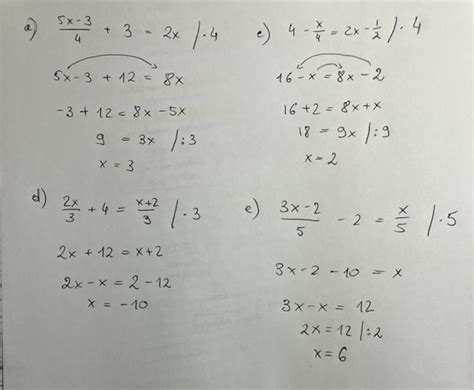 a) (5x-3)/4 + 3 = 2x /·4
5x-3 + 12 = 8x
-3 + 12 = 8x - 5x
9 = 3x /:3
x = 3
c) 4 - x/4 = 2x - 1/2 /·4
16 - x = 8x - 2
16 + 2 = 8x + x
18 = 9x /:9
x = 2
d) 2x/3 + 4 = (x+2)/3 /·3
2x + 12 = x + 2
2x - x = 2 - 12
x = -10
e) (3x-2)/5 - 2 = x/5 /·5
3x - 2 - 10 = x
3x - x = 12
2x = 12 /:2
x = 6